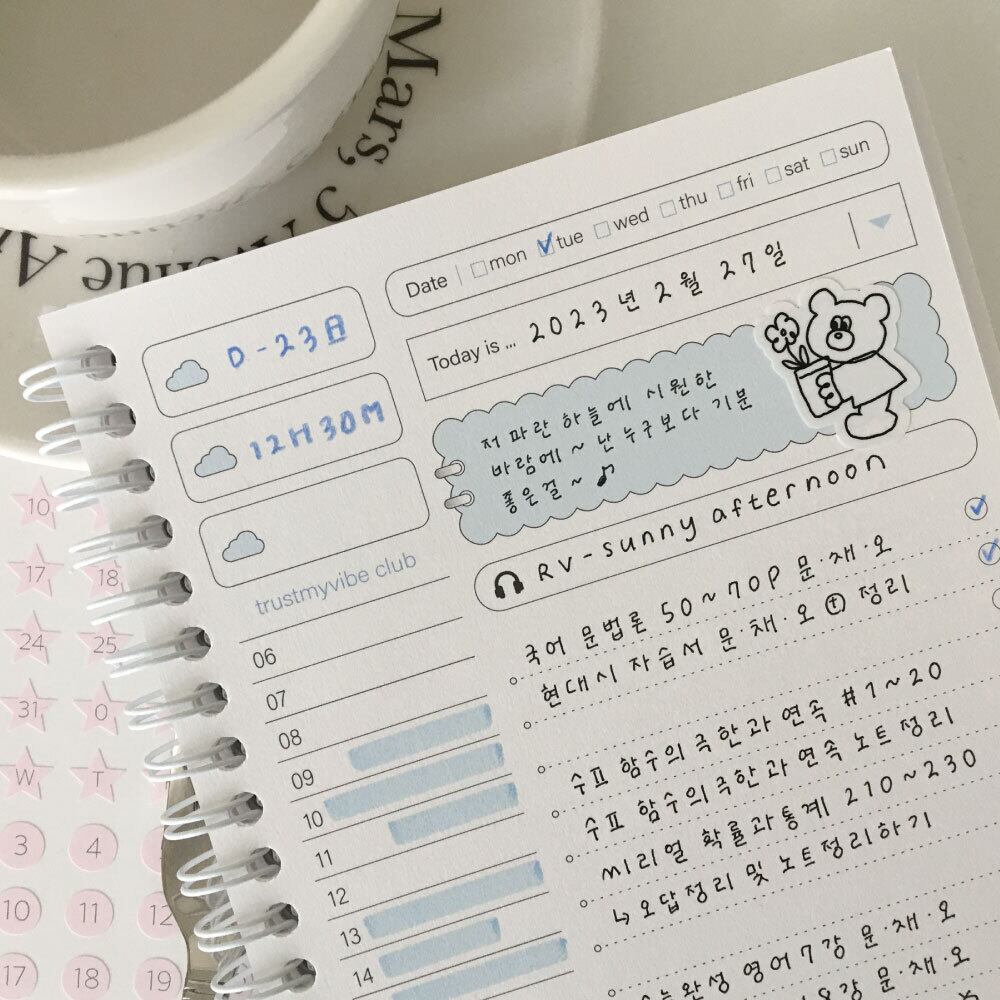 Mars, 5 Avenue A
Date | mon tue wed thu fri sat sun
Today is ... 2023년 2월 27일
D-23日
12H30M
저 파란 하늘에 시원한
바람에 ~ 난 누구보다 기분
좋은걸 ~ ♪
RV - sunny afternoon
trustmyvibe club
06
07
08
09
10
11
12
13
14
국어 문법론 50~70P 문·채·오
현대시 자습서 문·채·오 ⊕ 정리
수표 함수의 극한과 연속 #1~20
수표 함수의 극한과 연속 노트정리
미리얼 확률과통계 210~230
↳ 오답정리 및 노트정리하기
완성 영어 7강 문·채·오
8강 문·채·오
10
17 18
24 25
31 0
W T
3 4
10 11 12
17 18 19